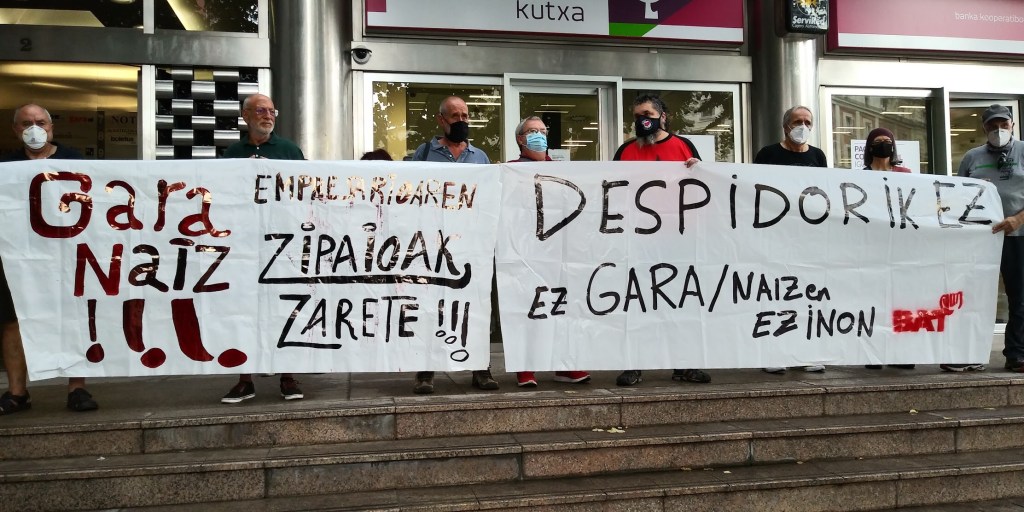 kutxa
Servired
banka kooperatiboa
2
Gara
Naiz
!!!
EMPRESARIOAREN
ZIPAIOAK
ZARETE !!!
DESPIDORIK EZ
EZ GARA/NAIZen
EZ INON
BAT